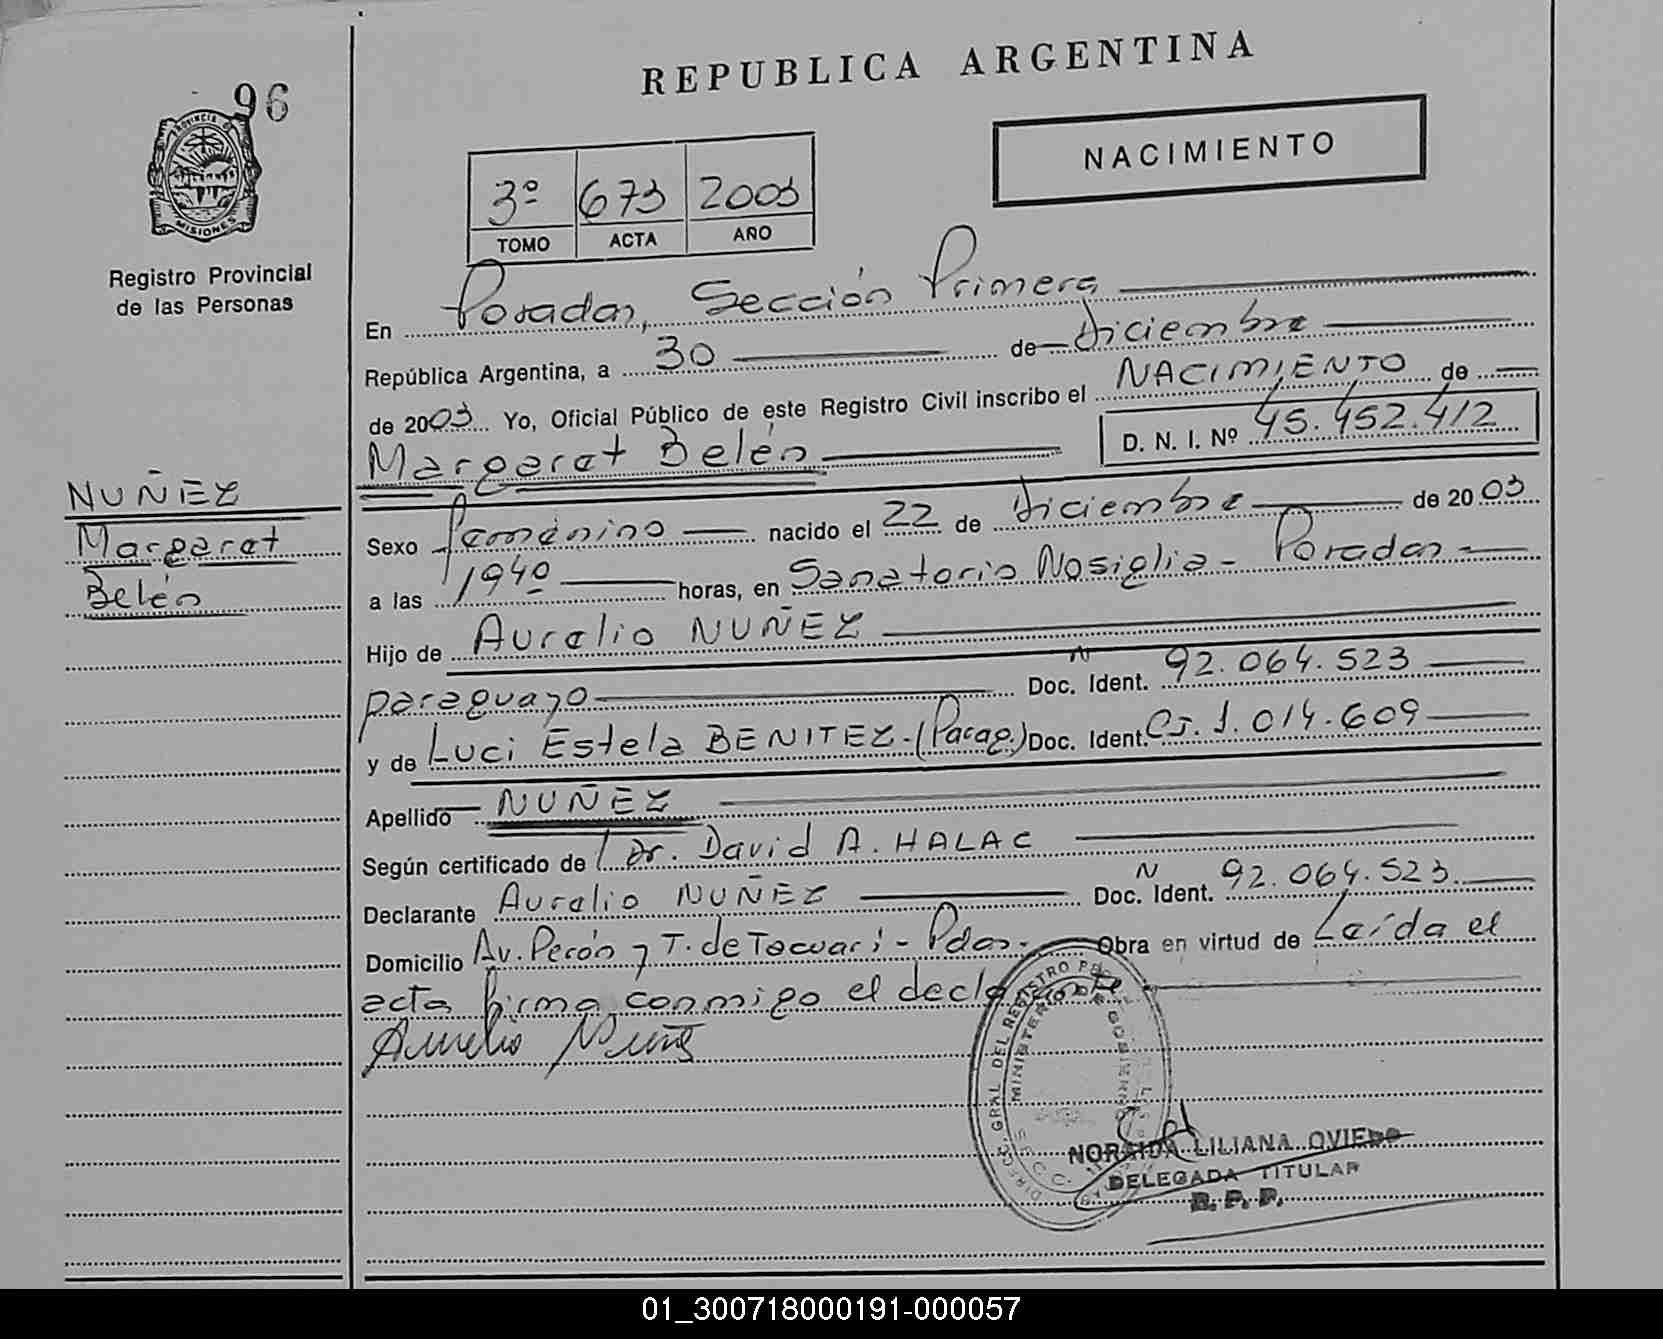 REPUBLICA ARGENTINA
96
PROVINCIA DE
MISIONES
Registro Provincial
de las Personas
NACIMIENTO
3º 673 2003
TOMO ACTA AÑO
En Posadas, Sección Primera
República Argentina, a 30 de diciembre
de 2003 Yo, Oficial Público de este Registro Civil inscribo el NACIMIENTO de
Margaret Belén D. N. I. Nº 45.452.412
NUÑEZ
Margaret
Belén
Sexo femenino nacido el 22 de diciembre de 2003
a las 1940 horas, en Sanatorio Nosiglia - Posadas -
Hijo de Aurelio NUÑEZ
paraguayo Doc. Ident. N 92.064.523
y de Luci Estela BENITEZ - (Parag.) Doc. Ident. CI. 1.014.609
Apellido NUÑEZ
Según certificado de Dr. David A. HALAC
Declarante Aurelio NUÑEZ Doc. Ident. N 92.064.523.
Domicilio Av. Perón y T. de Tacuarí - Pdas. Obra en virtud de Leída el
acta firma conmigo el declarante
Aurelio Nuñez
DIREC. GRAL. DEL REGISTRO
MINISTERIO DE GOBIERNO
NORAIDA LILIANA OVIEDO
DELEGADA TITULAR
R. P. P.
01_300718000191-000057